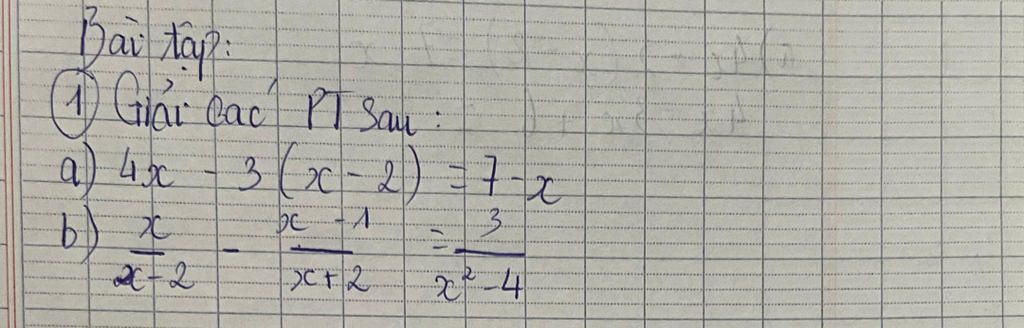 Bài tập:
① Giải các PT Sau:
a) 4x - 3(x - 2) = 7 - x
b) x/(x - 2) - (x - 1)/(x + 2) = 3/(x² - 4)